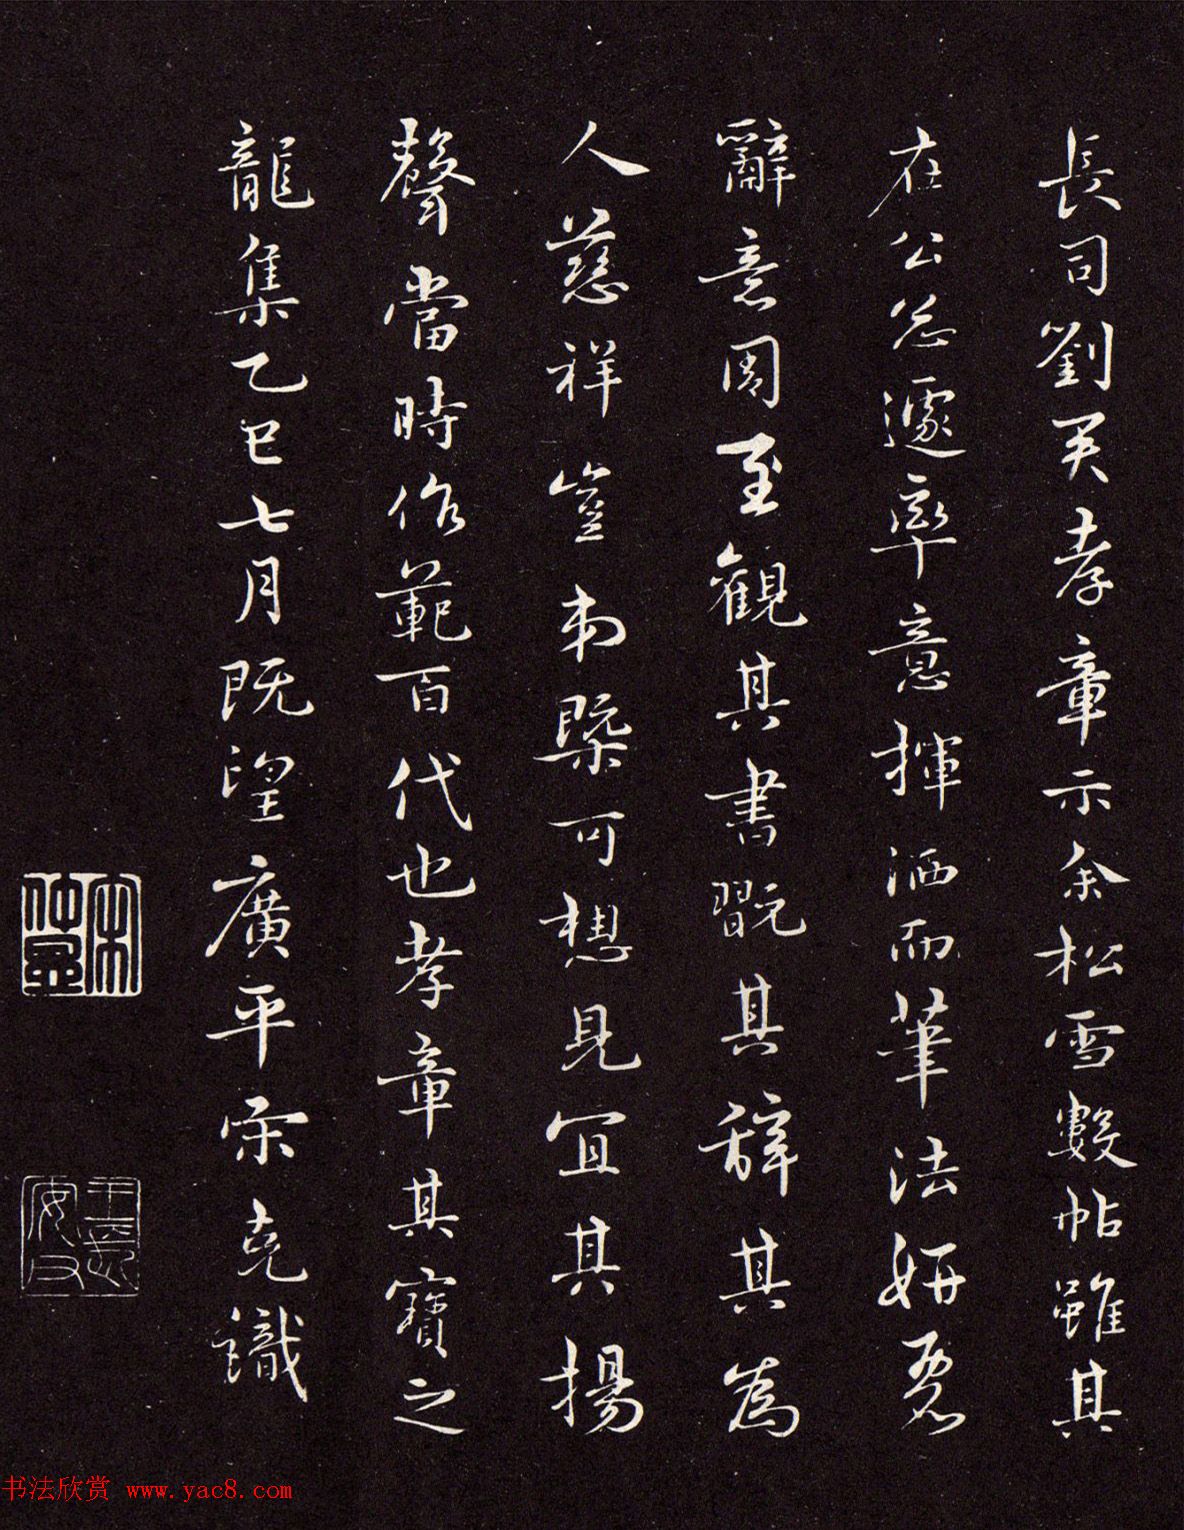 長司劉君孝章示余松雪數帖雖其
在公怱遽率意揮洒而筆法妍麗
辭意周至觀其書翫其辞其為
人慈祥豈弟槩可想見宜其揚
聲當時作範百代也孝章其寶之
龍集乙巳七月既望廣平宋克識
宋仲温
书法欣赏 www.yac8.com